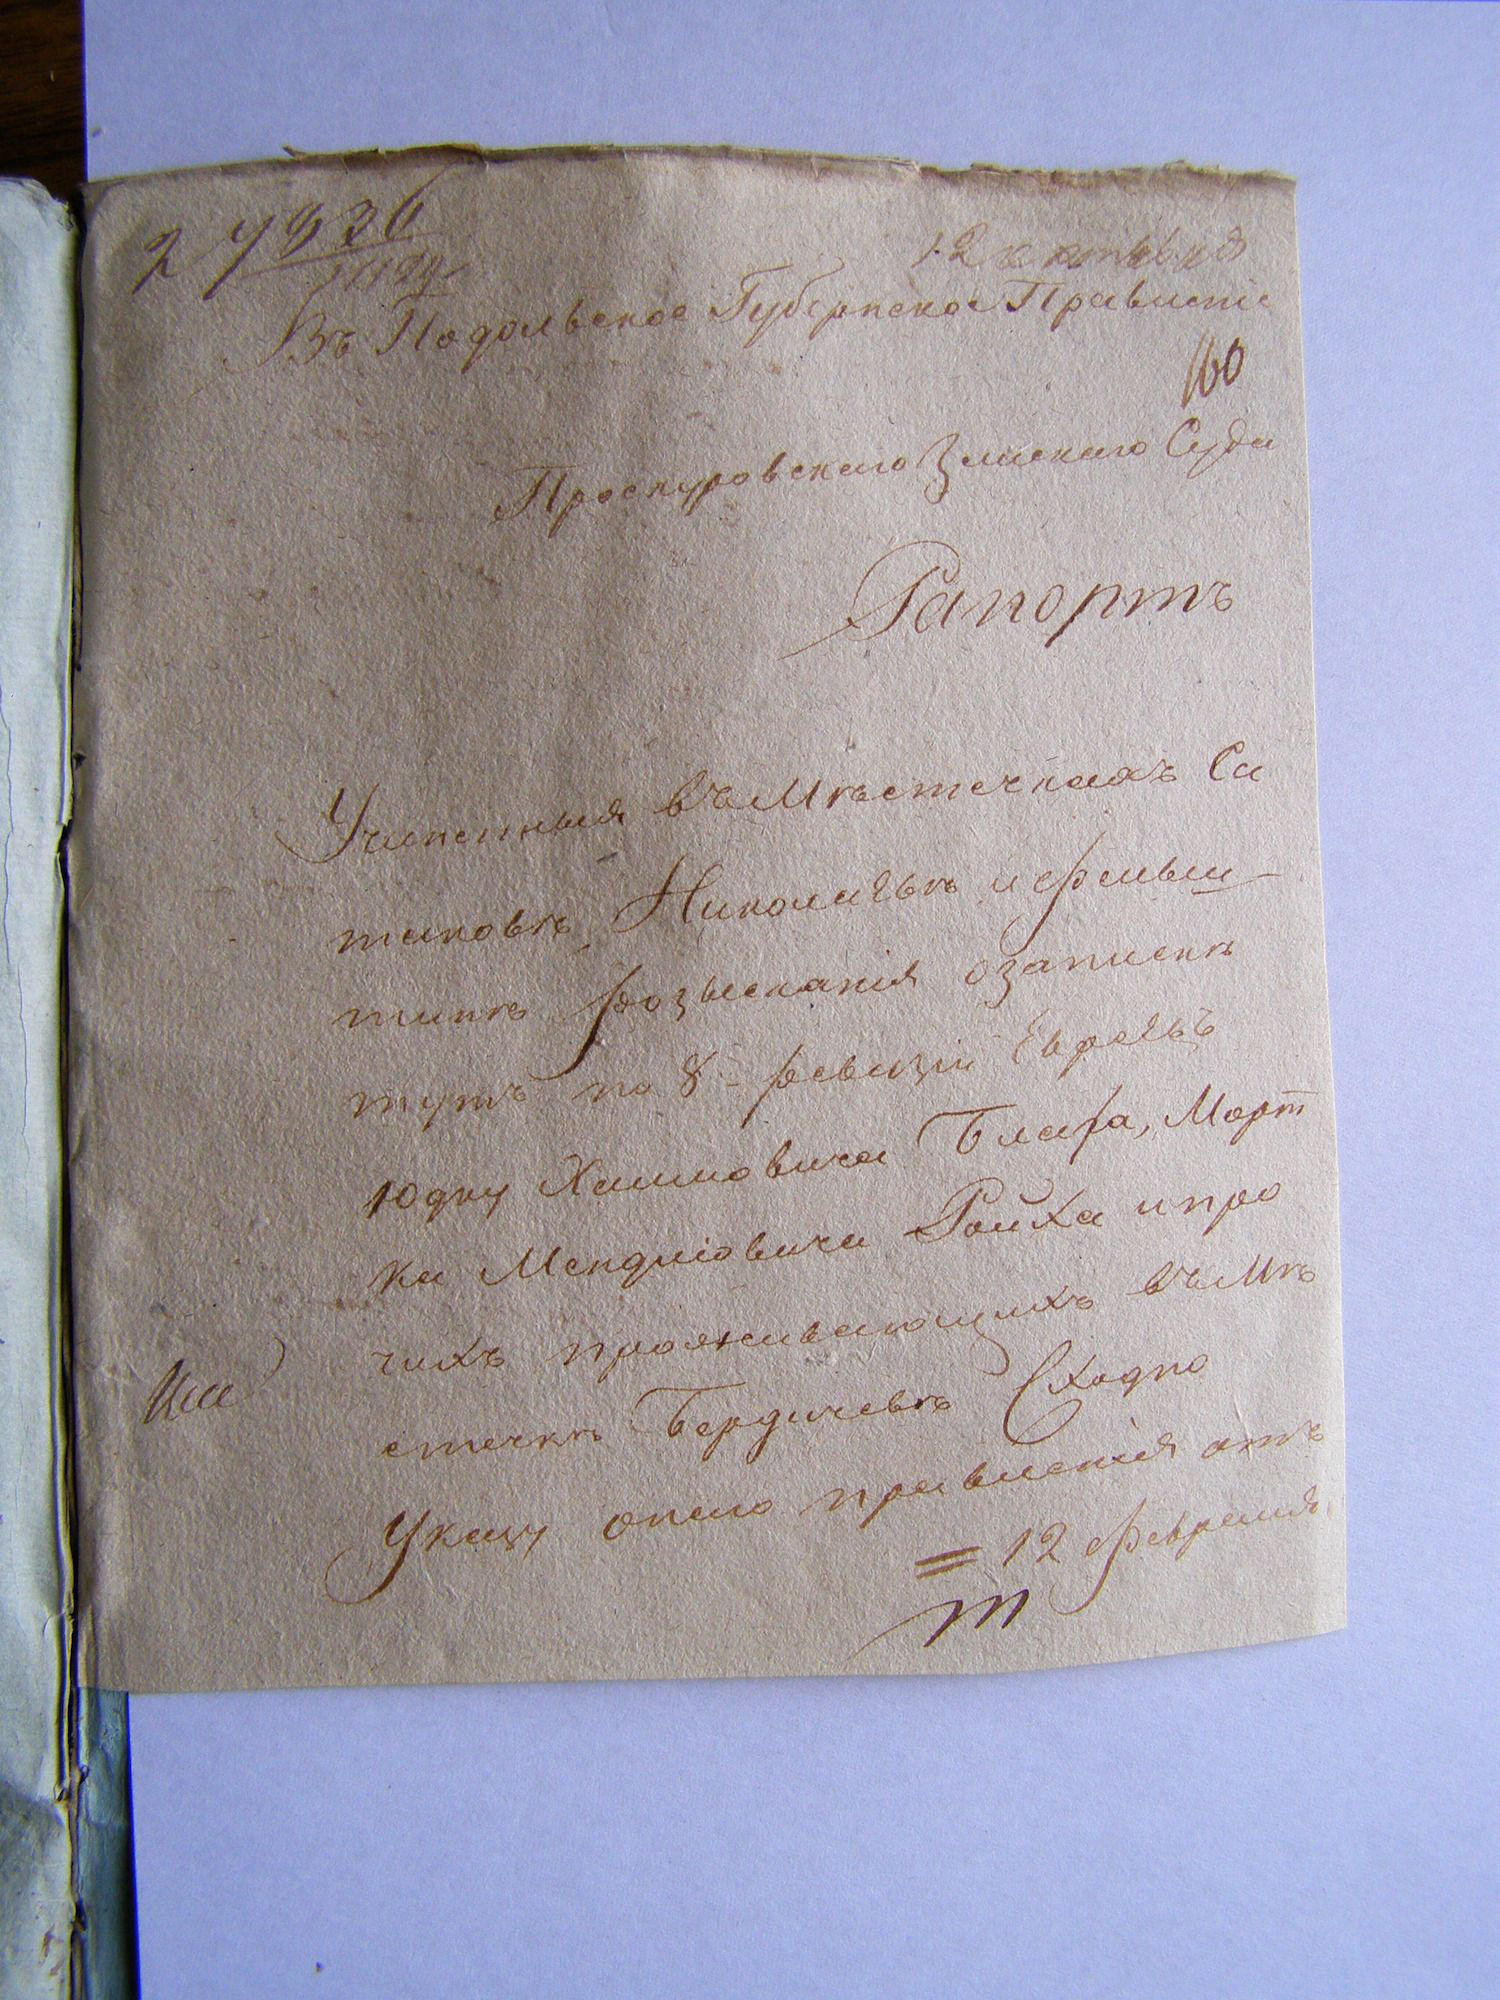 27836
12 октября
Въ Подольское Губернское Правленіе
160
Проскуровскаго Земскаго Суда
Рапортъ
Учиненныя въ Мѣстечкахъ Са
тановѣ, Николаевѣ и Фельш
тинѣ розысканія озапискѣ
тутъ по 8 ревизіи Евреевъ
Юдку Хаимовича Бляфа, Морт
ка Мендиовича Ройха и про
чихъ проживающихъ въ Мѣ
стечкѣ Бердичевѣ Сходно
Указу онаго правленія отъ
= 12 февраля